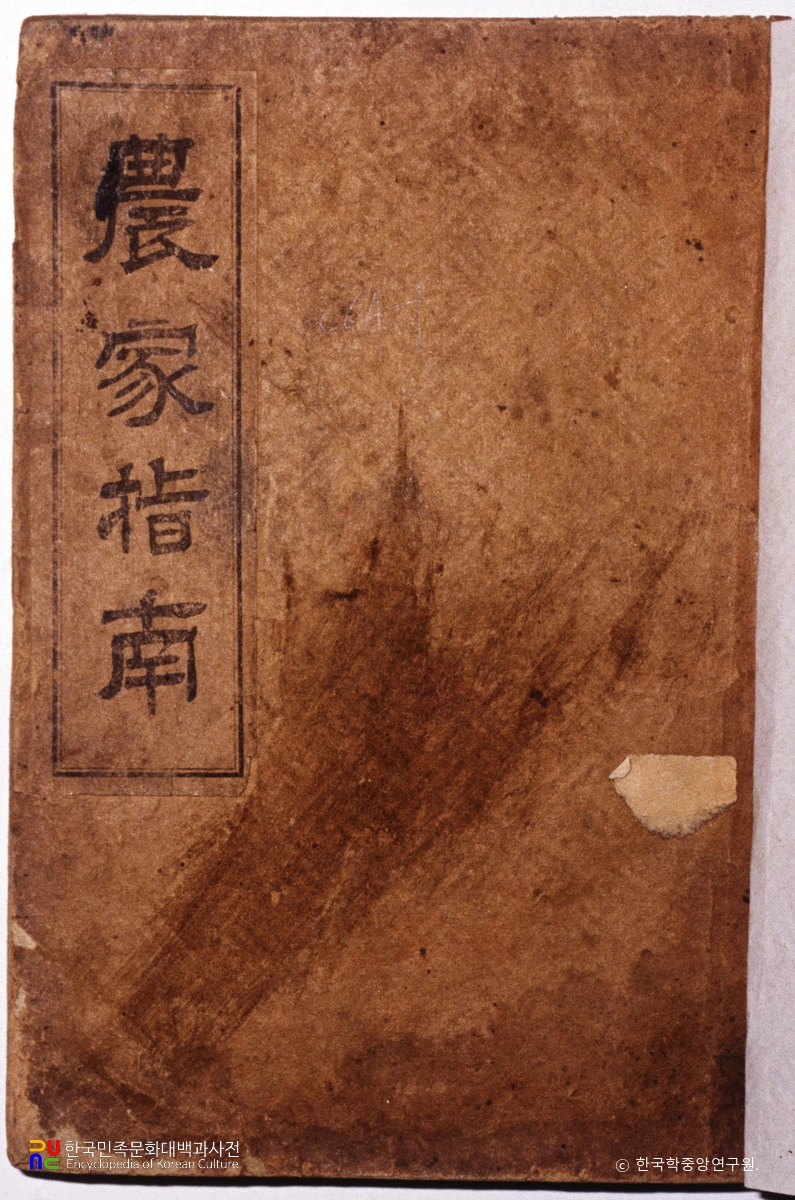 農家指南
한국민족문화대백과사전
Encyclopedia of Korean Culture
© 한국학중앙연구원.